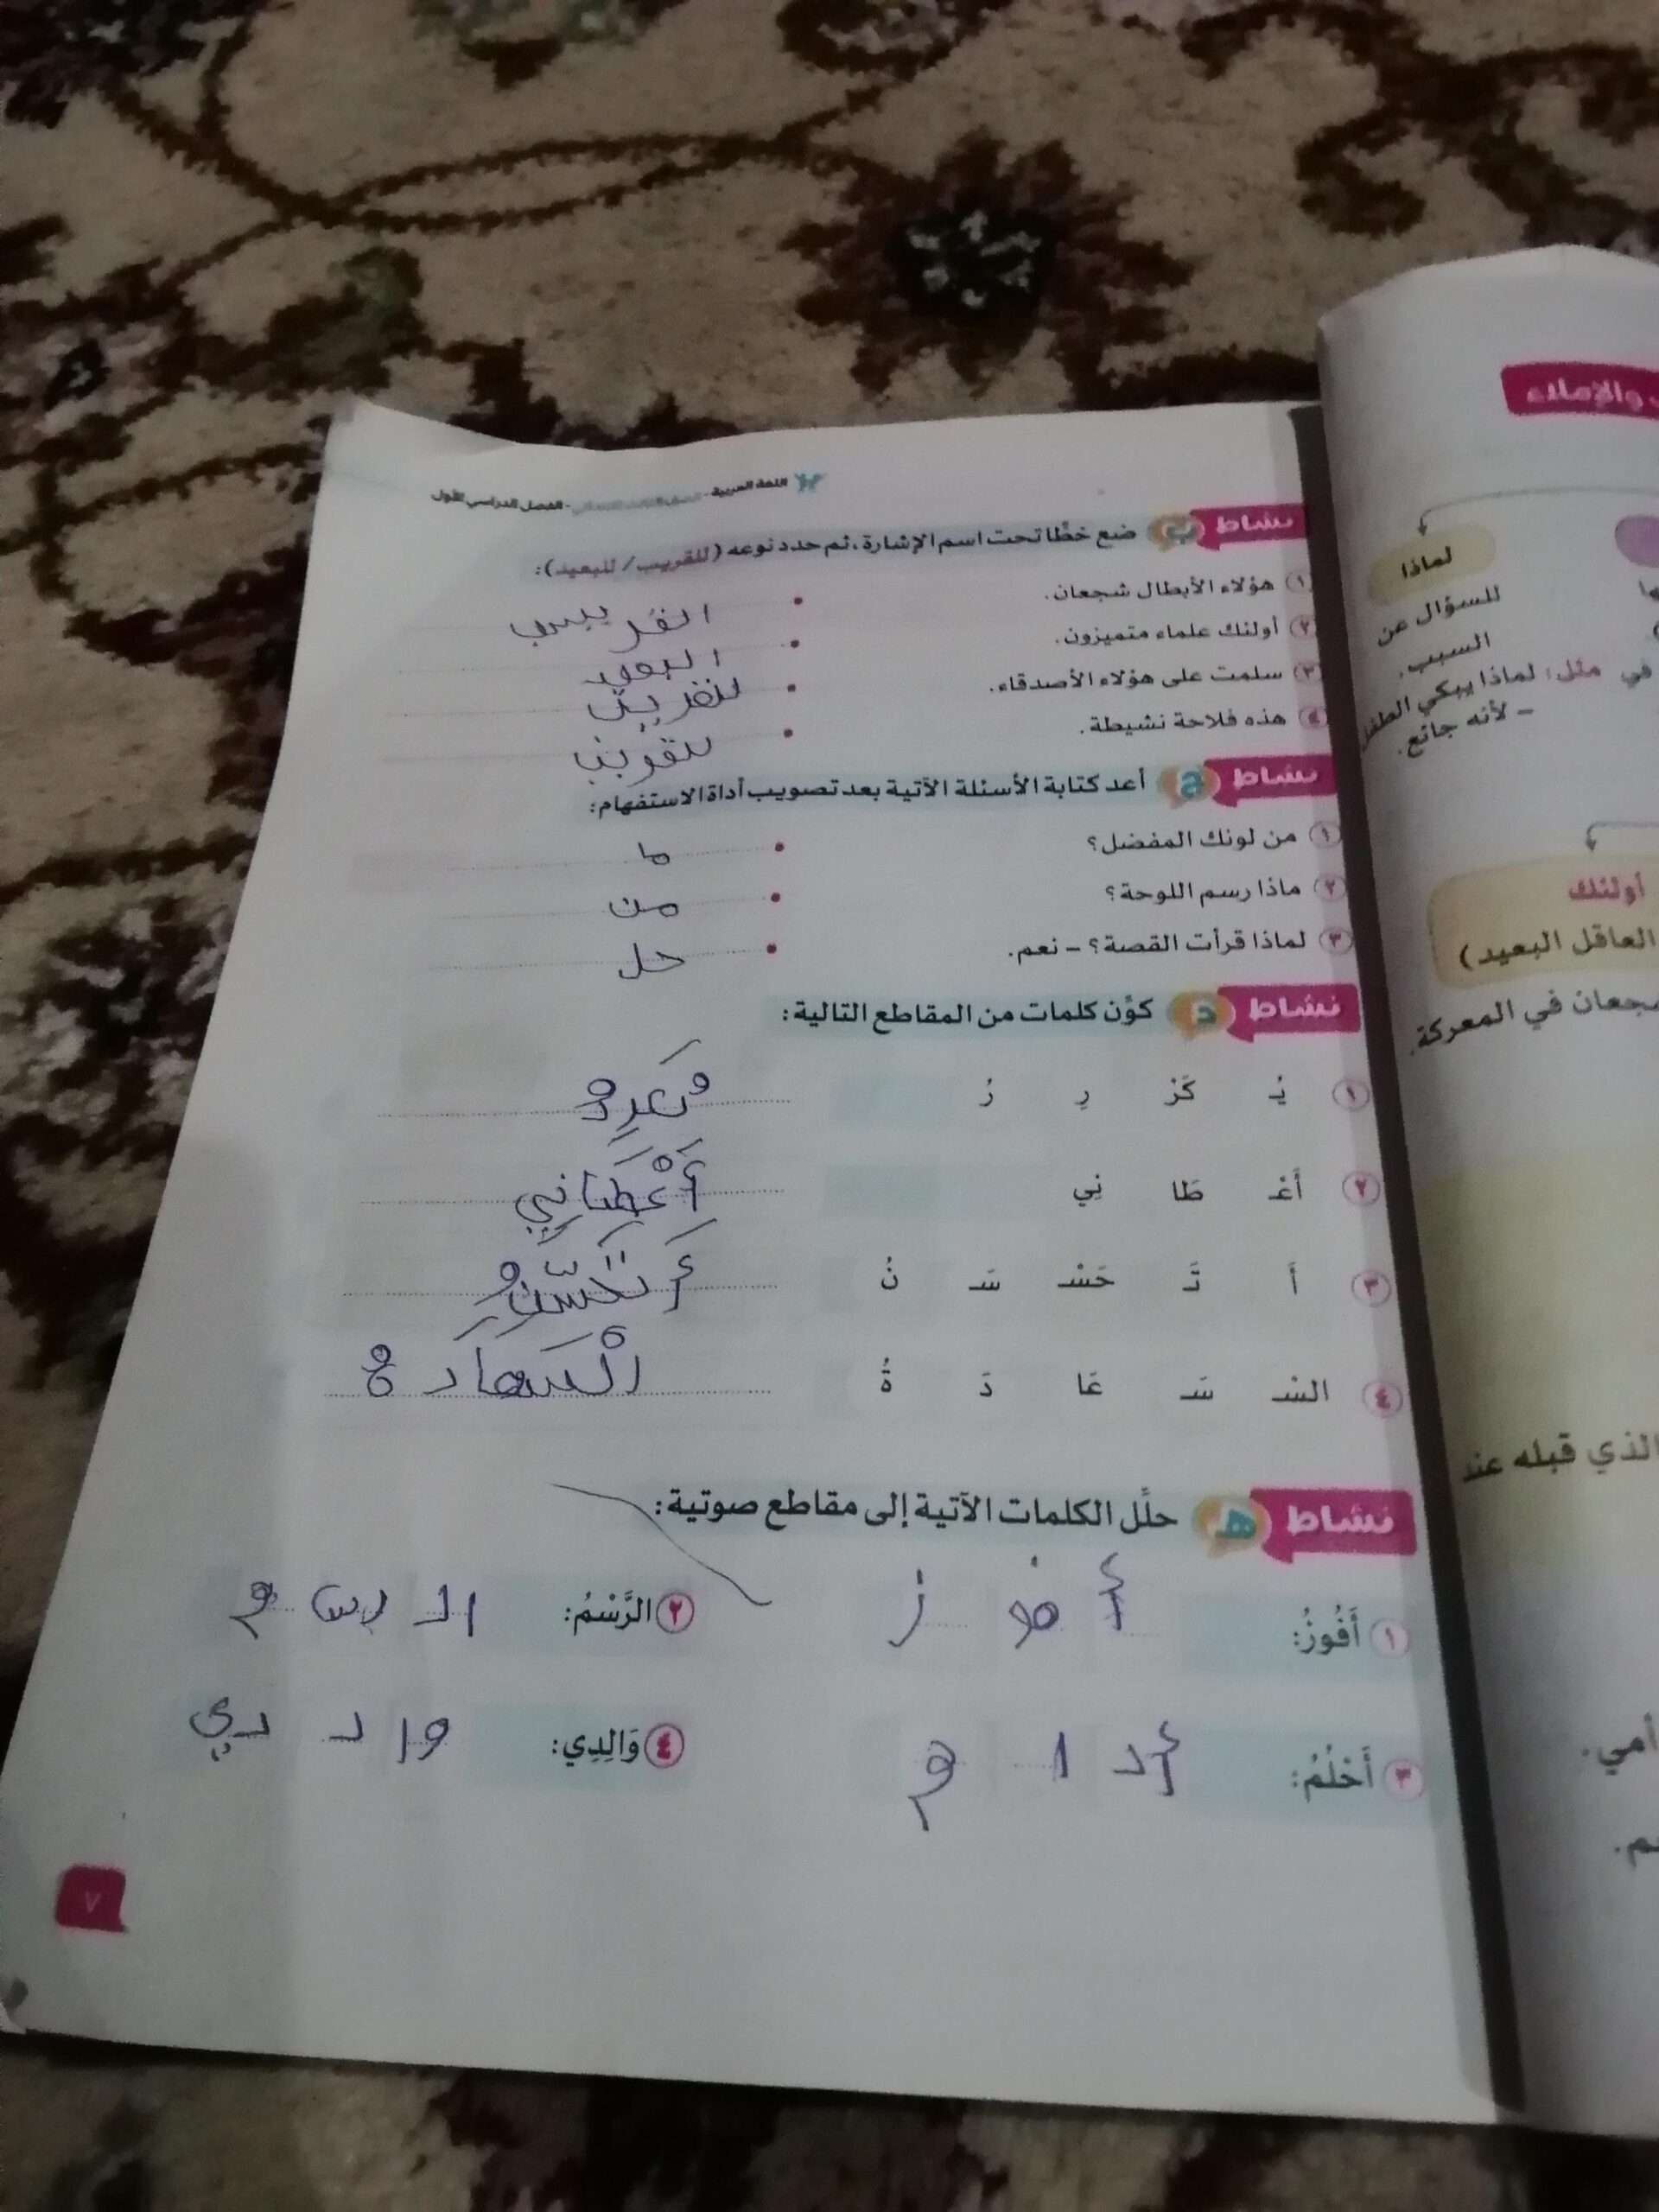 اللغة العربية - الصف الثالث الابتدائي - الفصل الدراسي الأول
نشاط ب ضع خطًّا تحت اسم الإشارة، ثم حدد نوعه (للقريب / للبعيد):
١ هؤلاء الأبطال شجعان. • القريب
٢ أولئك علماء متميزون. • البعيد
٣ سلمت على هؤلاء الأصدقاء. • للقريب
٤ هذه فلاحة نشيطة. • للقريب
نشاط ج أعد كتابة الأسئلة الآتية بعد تصويب أداة الاستفهام:
١ من لونك المفضل؟ • ما
٢ ماذا رسم اللوحة؟ • من
٣ لماذا قرأت القصة؟ – نعم. • هل
نشاط د كوِّن كلمات من المقاطع التالية:
١ يُـ كَرْ رِ رُ
٢ أَعْـ طَا نِي أَعْطَانِي
٣ أَ تَـ حَسْـ سَـ نُ
٤ السْـ سَـ عَا دَ ةُ السعادة
نشاط هـ حلِّل الكلمات الآتية إلى مقاطع صوتية:
١ أَفُوزُ: أ فو ز ٢ الرَّسْمُ:
٣ أَحْلُمُ: ٤ وَالِدِي: وا لـ دي
٧
والإملاء
لماذا
للسؤال عن
السبب.
في مثل: لماذا يبكي الطفل
– لأنه جائع.
أولئك
العاقل البعيد)
شجعان في المعركة.
الذي قبله عند
أمي.